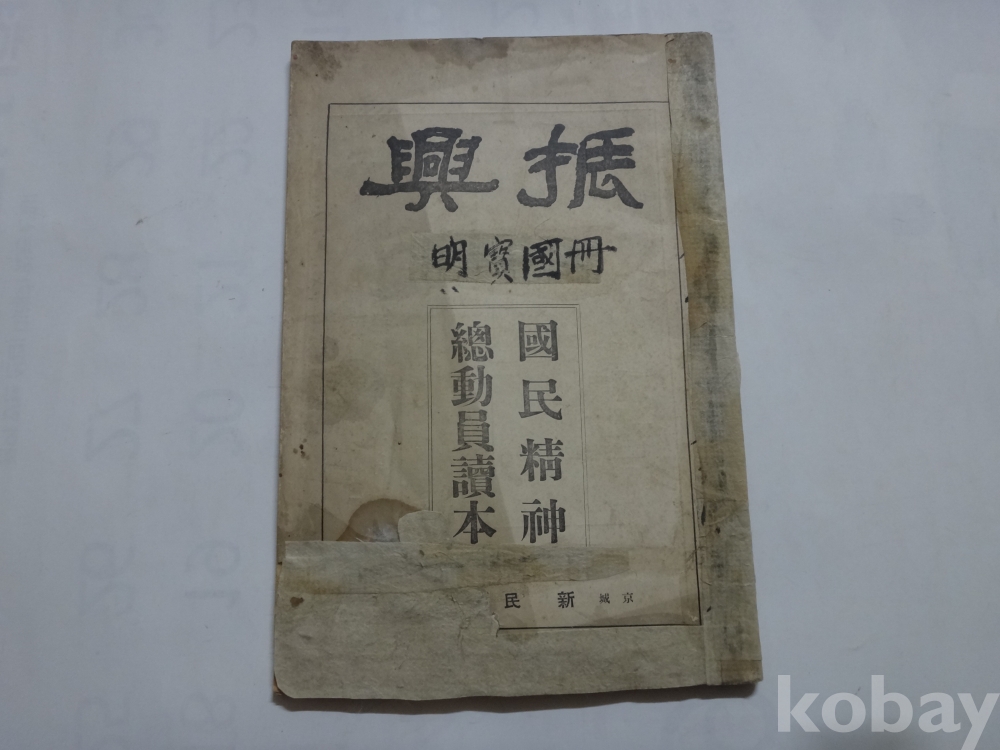 振興
冊國寶明
國民精神
總動員讀本
京城 新民
kobay